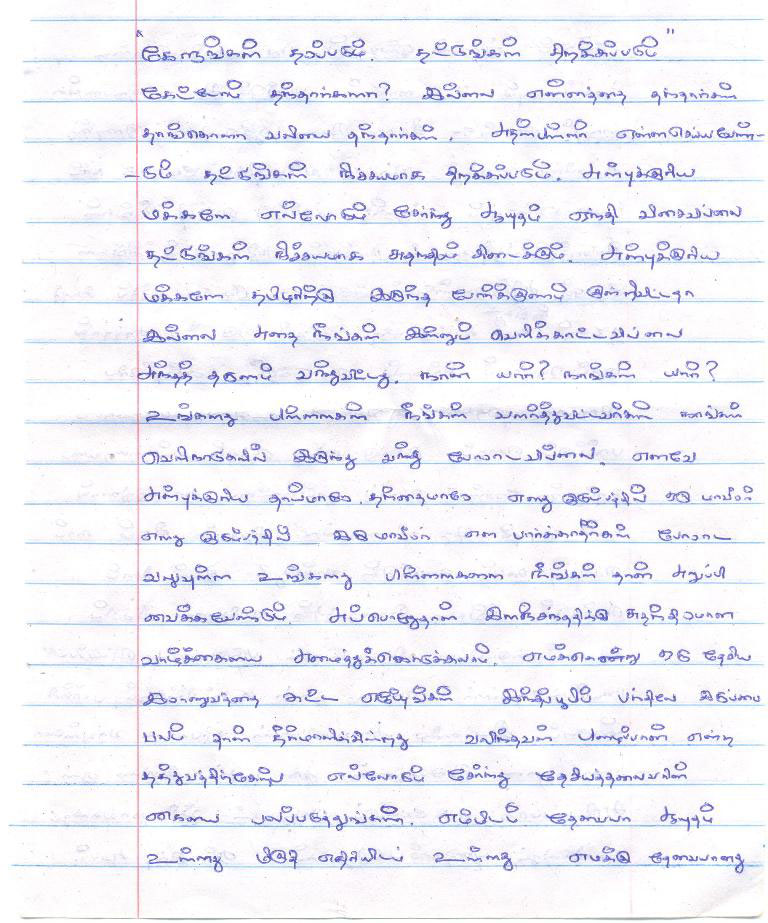 "கேளுங்கள் தரப்படும். தட்டுங்கள் திறக்கப்படும்"
கேட்டோம் தந்தார்களா? இல்லை என்னத்தை தந்தார்கள்
தாங்கொணா வலியை தந்தார்கள். அதன்பின்னர் என்னசெய்யவேண்-
-டும் தட்டுங்கள் நிச்சயமாக திறக்கப்படும். அன்புக்குரிய
மக்களே எல்லோரும் சேர்ந்து ஆயுதம் ஏந்தி விசைவில்லை
தட்டுங்கள் நிச்சயமாக சுதந்திரம் கிடைக்கும். அன்புக்குரிய
மக்களே தமிழரிற்கு இருந்த போர்க்குணம் குன்றிவிட்டதா
இல்லை அதை நீங்கள் இன்னும் வெளிக்காட்டவில்லை
அந்தத் தருணம் வந்துவிட்டது. நான் யார்? நாங்கள் யார்?
உங்களது பிள்ளைகள் நீங்கள் வளர்த்துவிட்டவர்கள் நாங்கள்
வெளிநாடுகளில் இருந்து வந்து போராடவில்லை. எனவே
அன்புக்குரிய தாய்மாரே தந்தைமாரே எனது குடும்பத்தில் ஒரு மாவீரர்
எனது குடும்பத்தில் இரு மாவீரர் என பார்க்காதீர்கள் போராட
வலுவுள்ள உங்களது பிள்ளைகளை நீங்கள் தான் அனுப்பி
வைக்கவேண்டும். அப்பொழுதுதான் இளஞ்சந்ததிக்கு சுதந்திரமான
வாழ்க்கையை அமைத்துக்கொடுக்கலாம். எமக்கென்று ஒரு தேசிய
இராணுவத்தை கட்ட எழுங்கள் இந்தப்பூமிப் பந்திலே இப்ப
பலம் தான் தீர்மானிக்கின்றது வலிந்தவன் பிழைப்பான் என்ற
தத்துவத்திற்கேற்ப எல்லோரும் சேர்ந்து தேசியத்தலைவரின்
கையை பலப்படுத்துங்கள். எம்மிடம் தேவையா ஆயுதம்
உள்ளது மீகுதி எதிரியிடம் உள்ளது எமக்கு தேவையானது